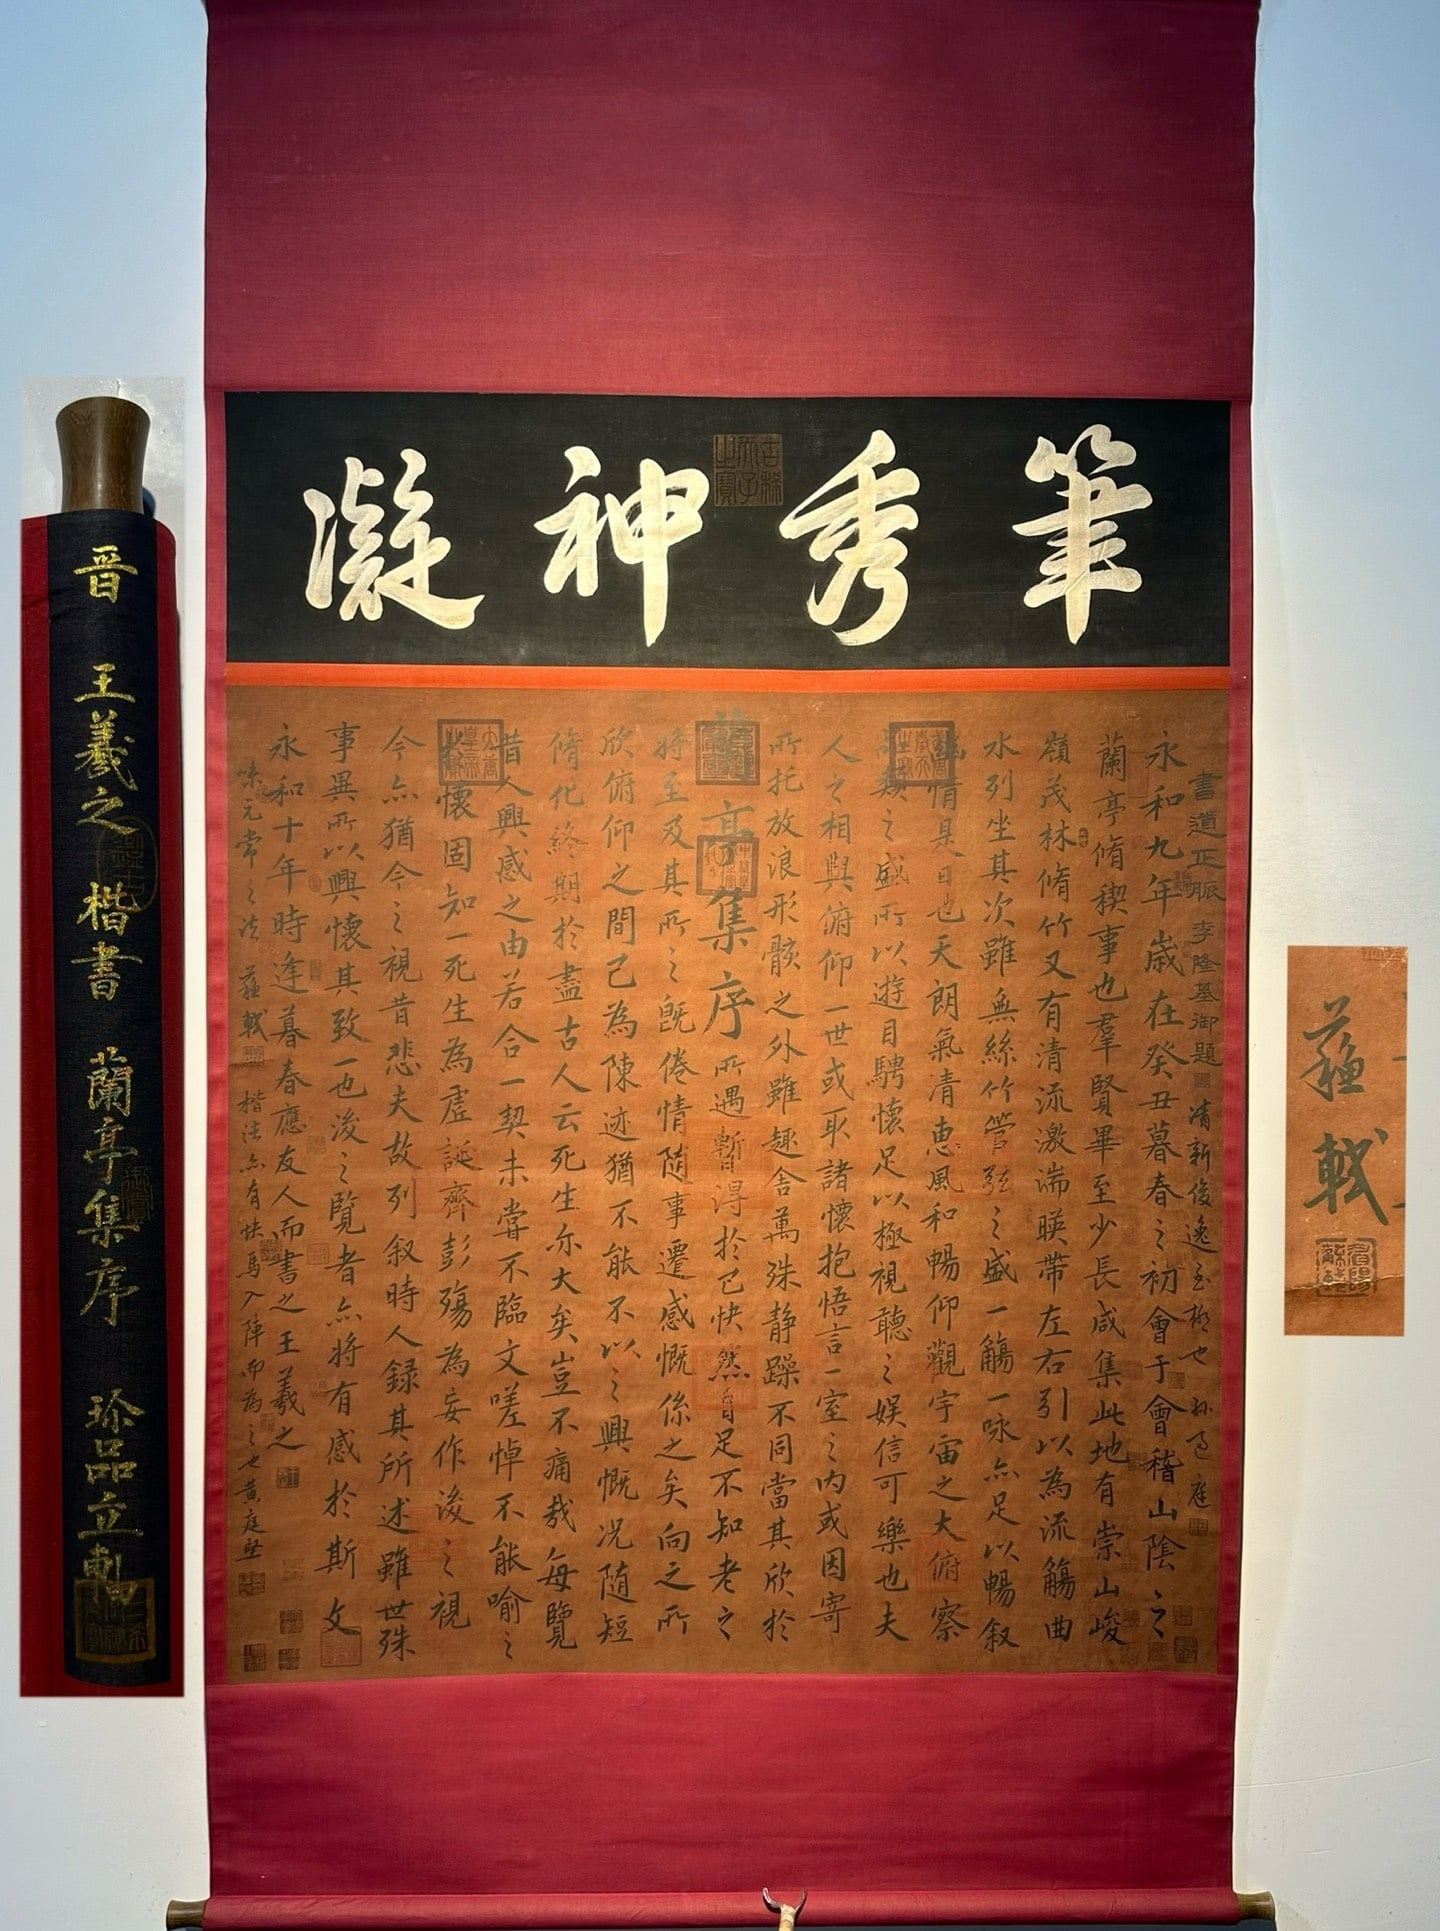 筆秀神凝
書道正脈 李隆基御題 清新俊逸 也 孫 庭
永和九年歲在癸丑暮春之初會于會稽山陰之
蘭亭脩稧事也羣賢畢至少長咸集此地有崇山峻
嶺茂林脩竹又有清流激湍暎帶左右引以為流觴曲
水列坐其次雖無絲竹管弦之盛一觴一咏亦足以暢叙
幽情是日也天朗氣清恵風和暢仰觀宇宙之大俯察
品類之盛所以遊目騁懷足以極視聽之娱信可樂也夫
人之相與俯仰一世或取諸懷抱悟言一室之內或因寄
所托放浪形骸之外雖趣舎萬殊静躁不同當其欣於
蘭亭集序
所遇暫得於己快然自足不知老之
将至及其所之既倦情随事遷感慨係之矣向之所
欣俯仰之間已為陳迹猶不能不以之興慨况随短
脩化終期於盡古人云死生亦大矣豈不痛哉每覽
昔人興感之由若合一契未嘗不臨文嗟悼不能喻之
於懷固知一死生為虛誕齊彭殤為妄作後之視
今亦猶今之視昔悲夫故列叙時人録其所述雖世殊
事異所以興懷其致一也後之覽者亦将有感於斯文
永和十年時逢暮春應友人而書之王羲之
元常之法 蘓軾 楷法亦有快馬入陣而為之也黄庭堅
晋 王羲之楷書 蘭亭集序 珍品立軸
蘓軾